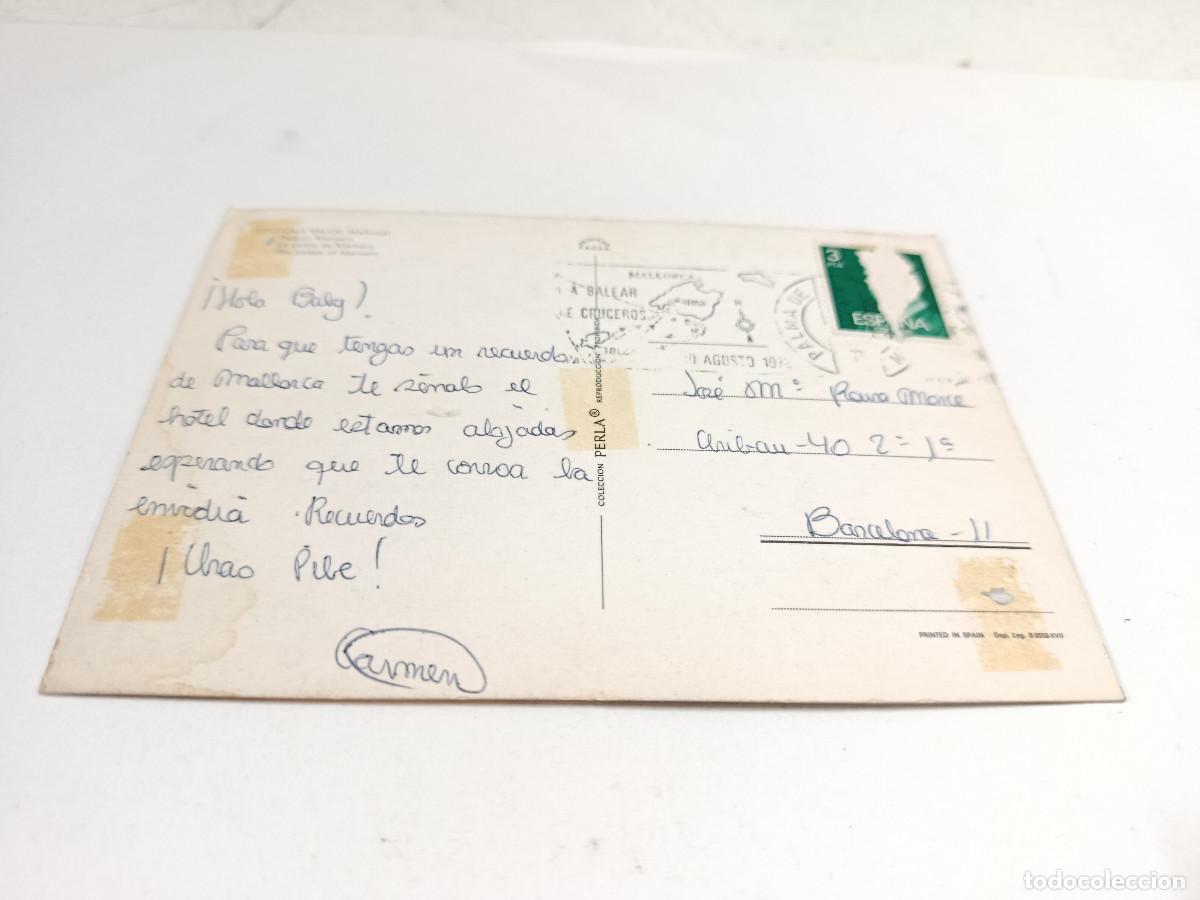 ¡Hola Baby!
Para que tengas un recuerdo
de Mallorca te señalo el
hotel dondo estamos alojadas
esperando que te corroa la
envidia. Recuerdos
¡Chao Pibe!
Carmen
COLECCION PERLA® REPRODUCCION
MALLORCA
A BALEAR
E CRUCEROS
Palma
AGOSTO 197
PALMA DE
3
PTA
ESPAÑA
José Mª Roura
Aribau-40 2= 1ª
Barcelona-11
PRINTED IN SPAIN Dep. Leg. B
todocoleccion